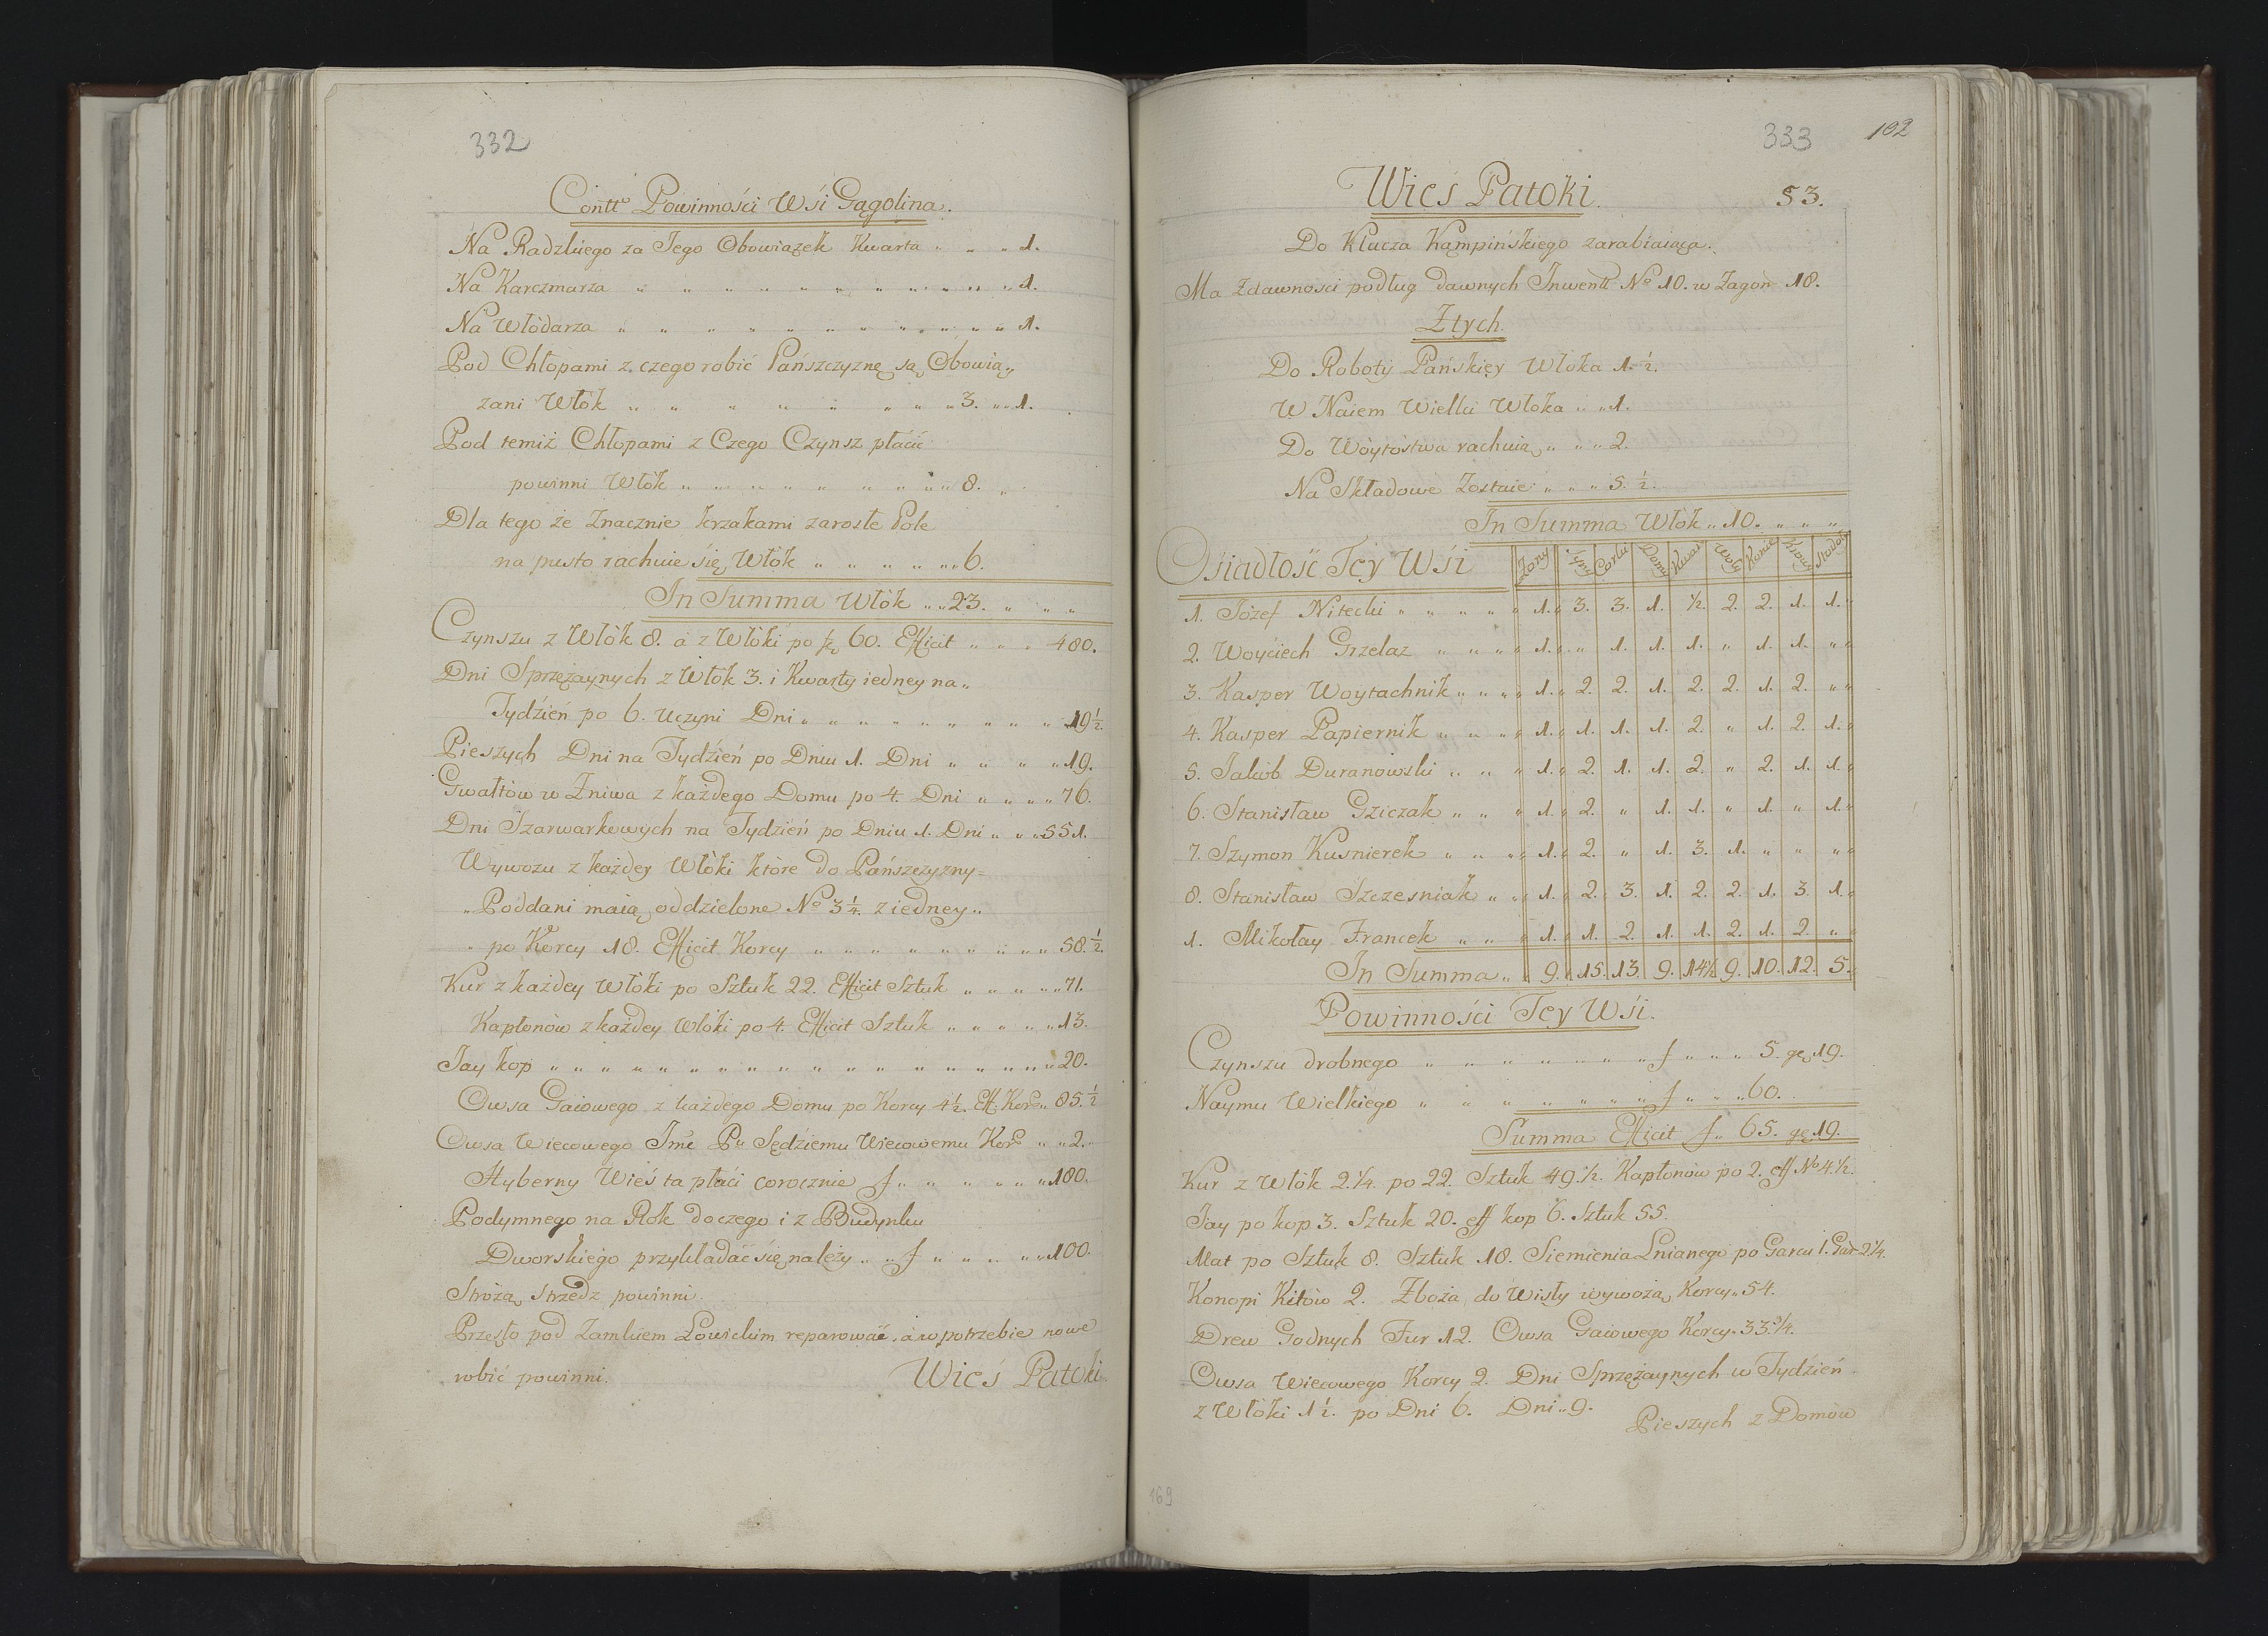 332
Contto Powinności Wśi Gągolina.
Na Radzkiego za Jego Obowiązek Kwarta „ „ „ 1.
Na Karczmarza „ „ „ „ „ „ „ „ „ „ „ 1.
Na Włódarza „ „ „ „ „ „ „ „ „ „ „ 1.
Pod Chłopami z czego robić Pańszczyznę są Obowią„
zani Włók „ „ „ „ „ „ „ „ 3. „ 1.
Pod temiż Chłopami z Czego Czynsz płacić
powinni Włók „ „ „ „ „ „ „ „ „ 8. „
Dla tego że Znacznie krzakami zarosłe Pole
na pusto rachuie się Włók „ „ „ „ „ „ 6.
In Summa Włók „ 23. „ „ „
Czynszu z Włók 8. a z Włóki po 60. Efficit „ „ „ 480.
Dni Sprzężaynych z Włók 3. i Kwarty iedney na„
Tydzień po 6. Uczyni Dni „ „ „ „ „ „ „ „ 19 1/2.
Pieszych Dni na Tydzień po Dniu 1. Dni „ „ „ „ 19.
Gwałtów w Żniwa z każdego Domu po 4. Dni „ „ „ „ 76.
Dni Szarwarkowych na Tydzień po Dniu 1. Dni „ „ „ 551.
Wywozu z każdey Włóki które do Pańszczyzny=
„Poddani maią oddzielone No 3 1/4. z iedney„
„ po Korcy 18. Efficit Korcy „ „ „ „ „ „ „ „ „ 58. 1/2.
Kur z każdey Włóki po Sztuk 22. Efficit Sztuk „ „ „ „ „ 71.
Kapłonów z każdey Włóki po 4. Efficit Sztuk „ „ „ „ „ 13.
Jay kop „ „ „ „ „ „ „ „ „ „ „ „ „ „ „ „ „ 20.
Owsa Gaiowego z każdego Domu po Korcy 4 1/2. Eff. Korcy „ 85. 1/2
Owsa Wiecowego Jme Pu Sędziemu Wiecowemu Korcy „ „ 2.
Hyberny Wieś ta płaci corocznie f „ „ „ „ „ „ 180.
Podymnego na Rok do czego i z Budynku
Dworskiego przykładać się należy „ „ f „ „ „ „ „ 100.
Stróżą Strzedz powinni.
Przęsło pod Zamkiem Łowickim reparować, a w potrzebie nowe
robić powinni.
Wieś Patoki
333 102
Wieś Patoki. 53.
Do Klucza Kąmpińskiego zarabiaiąca.
Ma Zdawności podług dawnych Inwentt No 10. w Zagon 18.
Ztych.
Do Roboty Pańskiey Włoka 1. 1/2.
W Naiem Wielki Włoka „ „ 1.
Do Wóytostwa rachuią „ „ „ 2.
Na Składowe Zostaie „ „ „ 5. 1/2.
In Summa Włók „ 10. „ „ „
Osiadłość Tey Wśi Żony Syny Corki Domy Kwar Woły Konie Krowy Stodoł
1. Józef Nitecki „ „ „ „ „ 1. 3. 3. 1. 1/2. 2. 2. 1. 1. „
2. Woyciech Grzelaz „ „ „ „ 1. „ 1. 1. 1. „ 1. 1. „ „
3. Kasper Woytachnik „ „ „ „ 1. 2. 2. 1. 2. 2. 1. 2. „ „
4. Kasper Papiernik „ „ „ „ 1. 1. 1. 1. 2. „ 1. 2. 1. „
5. Jakób Duranowski „ „ „ 1. 2. 1. 1. 2. „ 2. 1. 1. „
6. Stanisław Gziczak „ „ „ 1. 2. „ 1. 1. „ 1. „ 1. „
7. Szymon Kusnierek „ „ „ „ 1. 2. „ 1. 3. 1. „ „ „ „
8. Stanisław Szczesniak „ „ 1. 2. 3. 1. 2. 2. 1. 3. 1. „
1. Mikołay Francek „ „ „ 1. 1. 2. 1. 1. 2. 1. 2. „ „
In Summa „ „ 9. 15. 13. 9. 14 1/2 9. 10. 12. 5.
Powinności Tey Wśi.
Czynszu drobnego „ „ „ „ „ „ „ f „ „ „ 5. gr 19.
Naymu Wielkiego „ „ „ „ „ „ „ f „ „ „ 60.
Summa Efficit f „ 65. gr 19.
Kur z Włók 2.1/4. po 22. Sztuk 49.1/2. Kapłonów po 2. eff No 4.1/2.
Jay po kop 3. Sztuk 20. eff kop 6. Sztuk 55.
Mat po Sztuk 8. Sztuk 18. Siemienia Lnianego po Garcu 1. Gar 2 1/4.
Konopi Kitów 2. Zboża do Wisły wywożą Korcy „ 54.
Drew Godnych Fur 12. Owsa Gaiowego Korcy „ 33.3/4.
Owsa Wiecowego Korcy 2. Dni Sprzężaynych w Tydzień
z Włóki 1 1/2. po Dni 6. Dni „ 9.
Pieszych z Domów
169